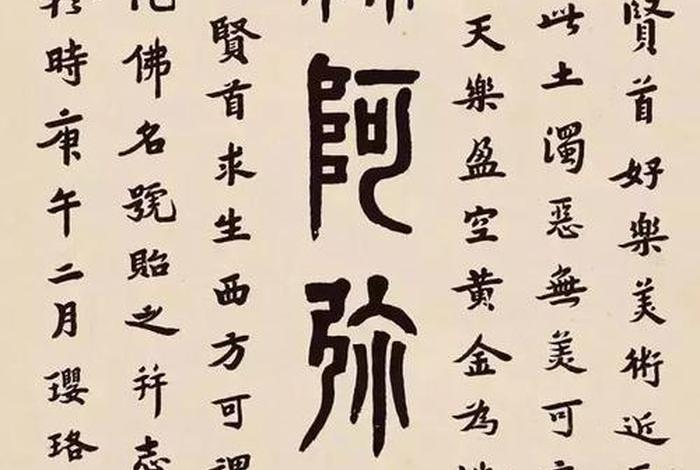 賢首好樂美術近
此土濁惡無美可
天樂盈空黃金為
阿弥
賢首求生西方可謂
佛名號貽之并志
時庚午二月瓔珞